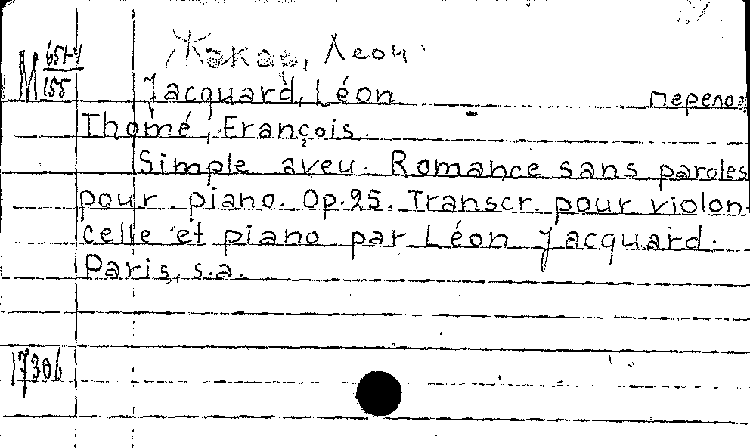 Жакар, Леон
М 651-4
155
Jacquard, Léon
перелож
Thomé, François
Simple aveu. Romance sans paroles
pour piano. Op.25. Transcr. pour violon-
celle et piano par Léon Jacquard.
Paris, s.a.
17306